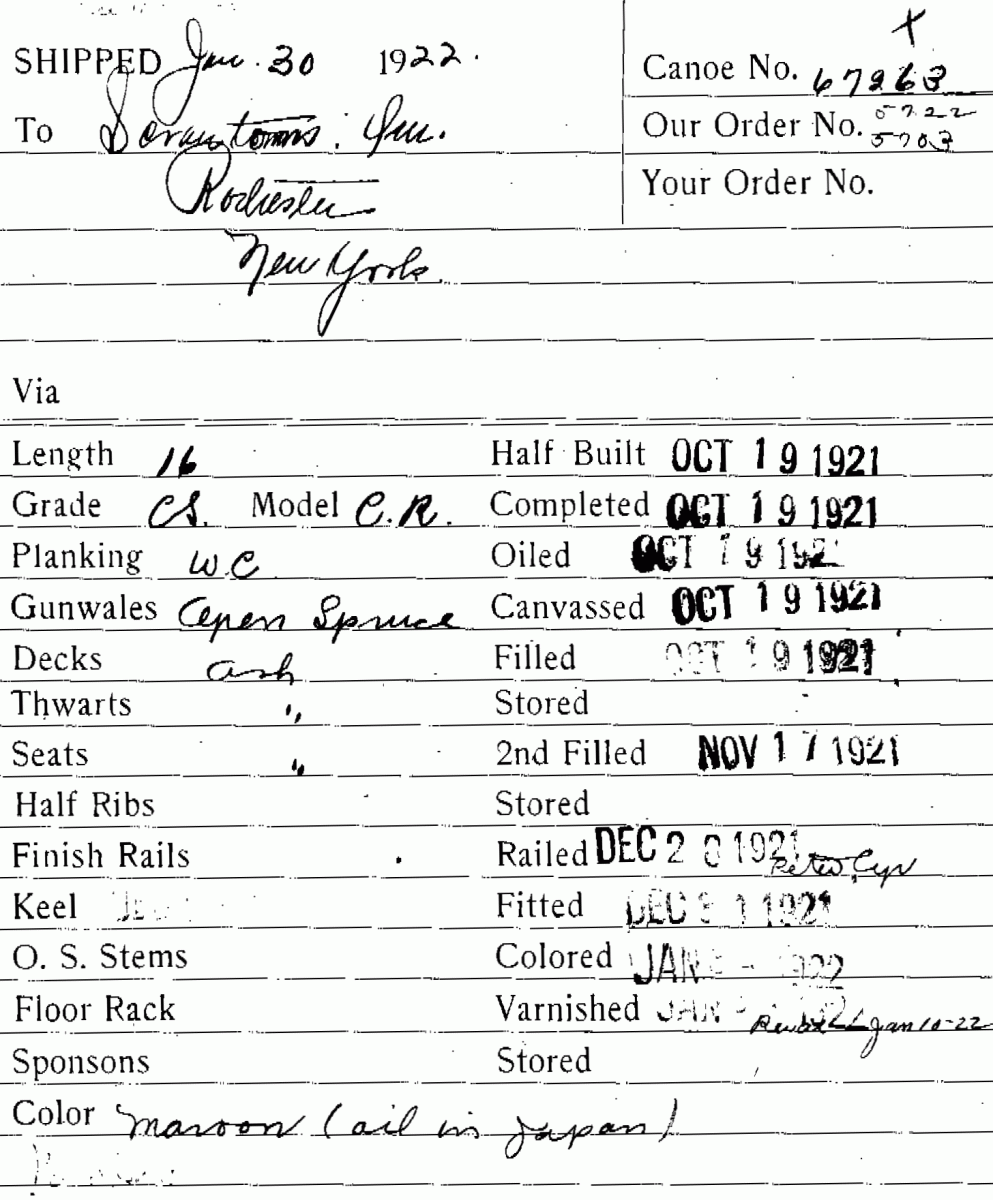 SHIPPED Jan. 30 1922.
Canoe No. 67263
To Scrantoms, Inc.
Our Order No. 5722
5703
Rochester
Your Order No.
New York.
Via
Length 16 Half Built OCT 19 1921
Grade CS. Model C.R. Completed OCT 19 1921
Planking W C Oiled OCT 19 192
Gunwales Open Spruce Canvassed OCT 19 1921
Decks Ash Filled OCT 19 1921
Thwarts " Stored
Seats " 2nd Filled NOV 17 1921
Half Ribs Stored
Finish Rails Railed DEC 20 1921
Keel Fitted DEC 1 1921
O. S. Stems Colored JAN 1922
Floor Rack Varnished JAN 1922 Jan 10-22
Sponsons Stored
Color Maroon (oil in japan)